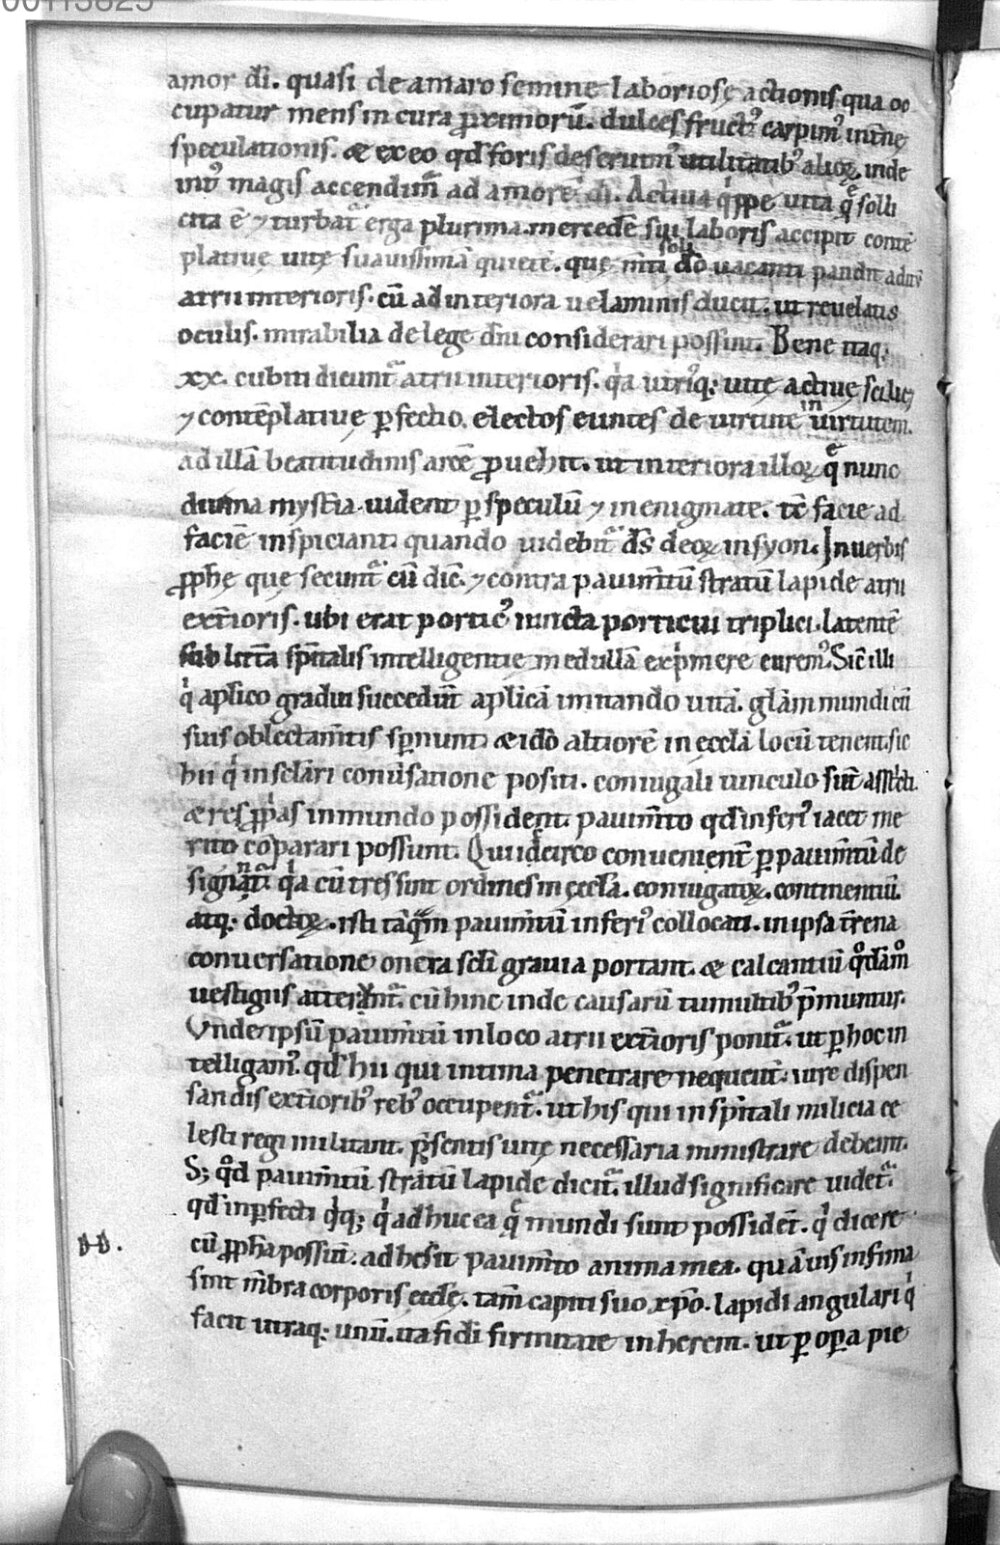 00113825
amor dī. quasi de amaro semine laboriosę actionis qua oc
cupatur mens in cura ꝓximorū. dulces fructꝰ carpimꝰ intīnę
speculationis. & ex eo qđ foris deseruimꝰ utilitatibꝰ alioꝝ. inde
magis accendimꝰ ad amorē dī. Actiua qͥppe uita qͤ solli
cita ē ⁊ turbatᷓ erga plurima. mercedē sui laboris accipit contē
platiuę uitę suauissimā quietē. quę mīti soli dō uacanti pandit aditū
atrii interioris. cū ad interiora uelaminis ducit. ut reuelatis
oculis. mirabilia de lege dn̄i considerari possint. Bene itaq;
xx. cubiti dicuntᷓ atrii interioris. qͥa utriꝰq; uitę actiuę scilic&
⁊ contēplatiuę ꝑfectio. electos euntes de uirtute in uirtutem.
ad illā beatitudinis arcē ꝓuehit. ut interiora illoꝝ qͤ nunc
diuina mysťia uident ꝑ speculū ⁊ in enigmate. tc̄ facie ad
faciē inspiciant. quando uidebitᷓ ds̄ deoꝝ in syon. In uerbis
ꝓphę que secuntᷓ cū dic̄. ⁊ contra pauim̄tū stratū lapide atrii
ext̄ioris. ubi erat porticꝰ iuncta porticui triplici. latentē
sub litt̄a sp̄italis intelligentię medullā exp͛mere curemꝰ. Sic̄ illi
qͥ aplico gradui succedūt aplicā imitando uitā. gl̄am mundi cū
suis oblectam̄tis sp̄nunt & idō altiorē in eccl̄a locū tenent. sic
hii qͥ in sclari conūsatione positi. coniugali uinculo sūt astͥcti.
& res ꝓprias in mundo possident. pauim̄to qđ inferiꝰ iacet me
rito cōparari possunt. Qui idcirco conuenient̄ ꝑ pauim̄tū de
signantᷓ. qͥa cū tres sint ordines in eccl̄a. coniugatoꝝ. continentiū.
atq; doctoꝝ. isti tāqᷓm pauim̄tū inferiꝰ collocati. in ipsa t̄rena
conuersatione onera sc̄li grauia portant. & calcantiū qͦdāmͦ
uestigiis atterūntᷓ. cū hinc inde causarū tumultibꝰ p̄muntur.
Vnde ipsū pauim̄tū in loco atrii ext̄ioris ponitᷓ. ut ꝑ hoc in
telligamꝰ. qđ hii qui intima penetrare nequeūt. iure dispen
sandis ext̄ioribꝰ rebꝰ occupentᷓ. ut his qui in sp̄itali milicia ce
lesti regi militant. p̄sentis uitę necessaria ministrare debeant.
S; qͦd pauim̄tū stratū lapide dicitᷓ. illud significare uidetᷓ.
qđ inꝑfecti qͥq; qͥ adhuc ea qͤ mundi sunt possidēt. qͥ dicere
cū ꝓpha possūt. adhesit pauim̄to anima mea. quāuis infima
sint m̄bra corporis eccl̄ę. tam̄ capiti suo xp̄o. lapidi angulari qͥ
facit utraq; unū. ita fidi firmitate inherent. ut ꝑ oꝑa pie